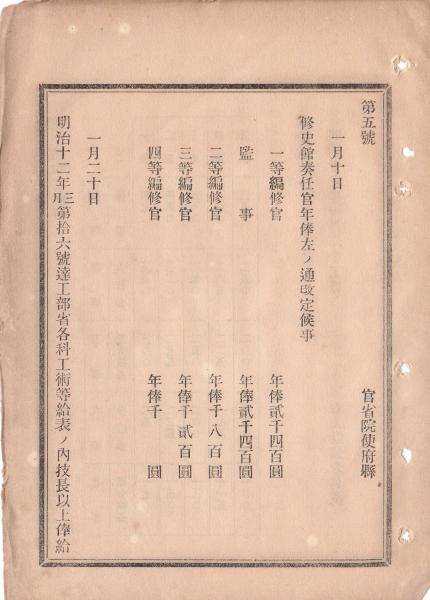 第五號
官省院使府縣
一月十日
修史館奏任官年俸左ノ通改定候事
一等編修官 年俸貳千四百圓
監事 年俸貳千四百圓
二等編修官 年俸千八百圓
三等編修官 年俸千貳百圓
四等編修官 年俸千圓
一月二十日
明治十二年三月第拾六號達工部省各科工術等給表ノ內技長以上俸給